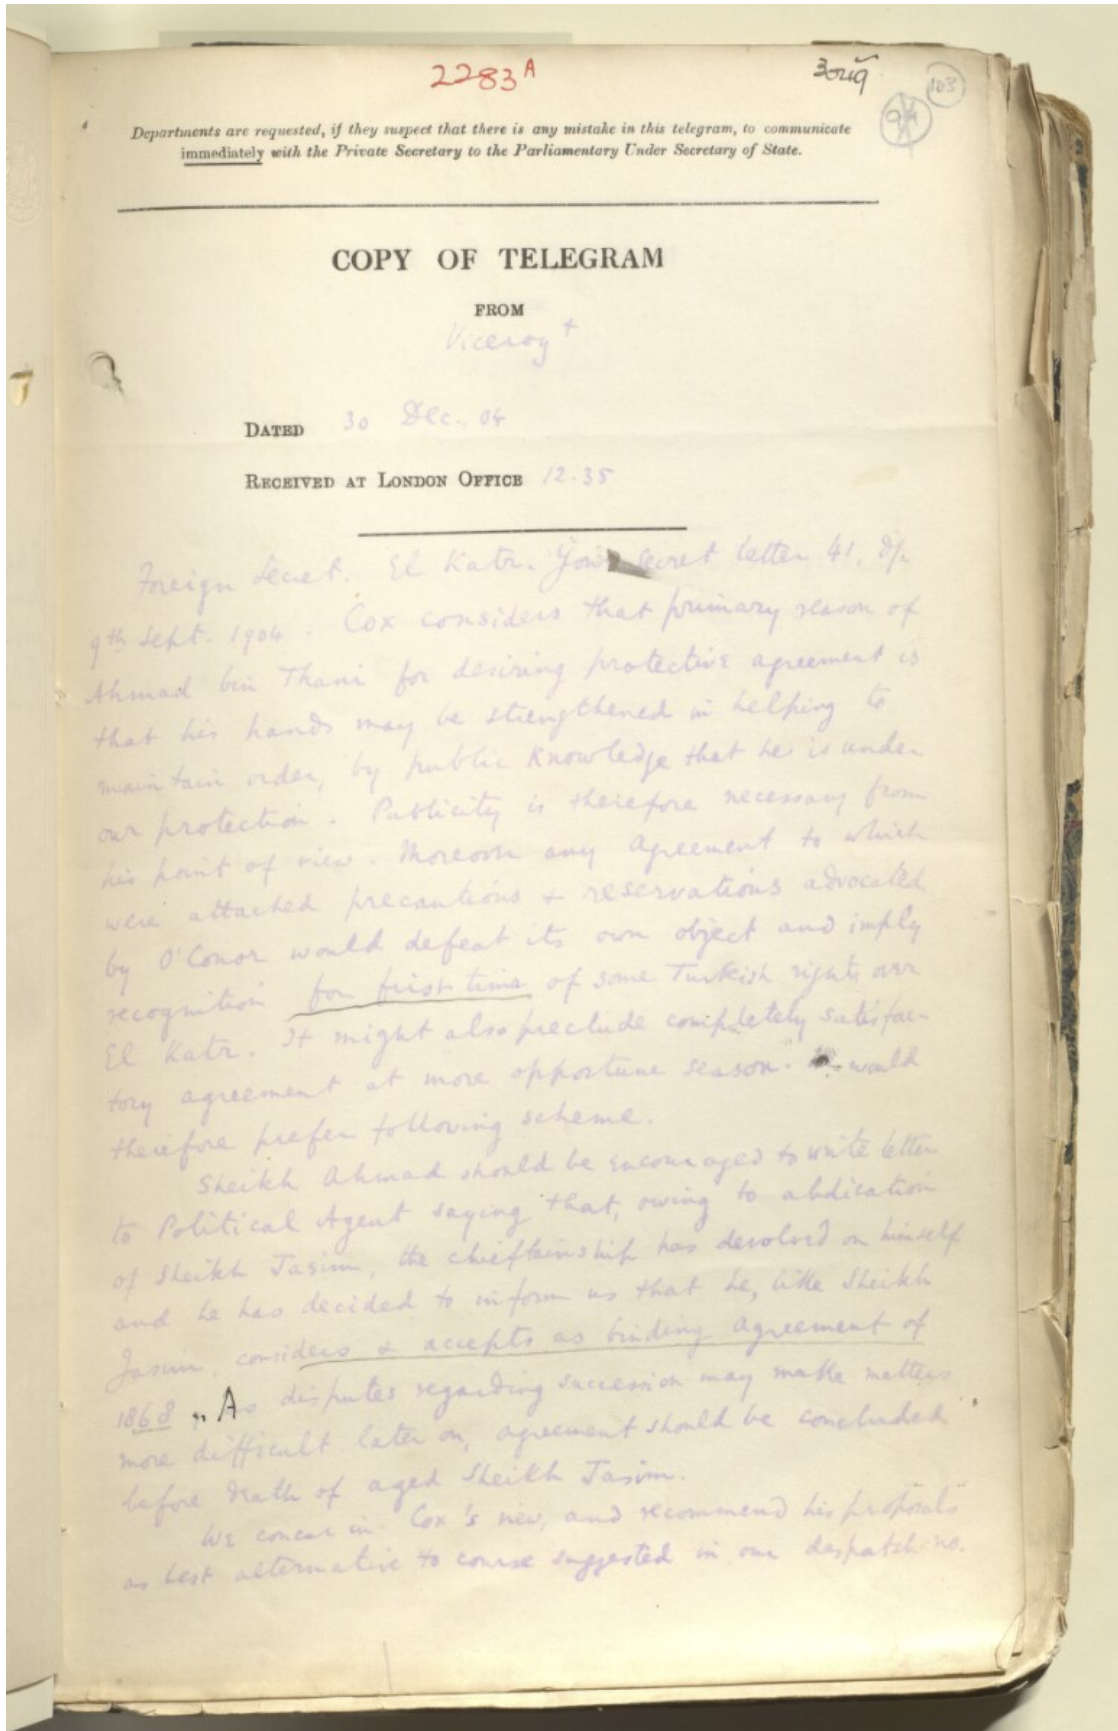 2283A
103
Departments are requested, if they suspect that there is any mistake in this telegram, to communicate
immediately with the Private Secretary to the Parliamentary Under Secretary of State.
COPY OF TELEGRAM
FROM
Viceroy +
DATED 30 Dec. 04
RECEIVED AT LONDON OFFICE 12.35
Foreign Secret. El Katr. Your secret letter 41, d/-
9th Sept. 1904. Cox considers that primary reason of
Ahmad bin Thani for desiring protective agreement is
that his hands may be strengthened in helping to
maintain order, by public knowledge that he is under
our protection. Publicity is therefore necessary from
his point of view. Moreover any agreement to which
were attached precautions & reservations advocated
by O'Conor would defeat its own object and imply
recognition for first time of some Turkish rights over
El Katr. It might also preclude completely satisfac-
tory agreement at more opportune season. would
therefore prefer following scheme.
Sheikh Ahmad should be encouraged to write letter
to Political Agent saying that, owing to abdication
of Sheikh Jasim, the chieftainship has devolved on himself
and he has decided to inform us that he, like Sheikh
Jasim, considers & accepts as binding agreement of
1868. As disputes regarding succession may make matters
more difficult later on, agreement should be concluded
before death of aged Sheikh Jasim.
We concur in Cox's view, and recommend his proposals
as best alternative to course suggested in our despatch no.